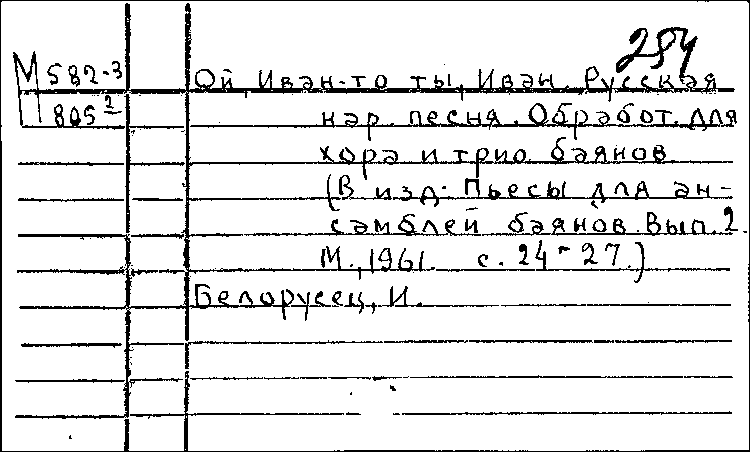 254
М 582-3
П 805 2
Ой, Иван-то ты, Иван. Русская
нар. песня. Обработ. для
хора и трио баянов.
(В изд: Пьесы для ан-
самблей баянов. Вып. 2.
М., 1961. с. 24-27.)
Белорусец, И.